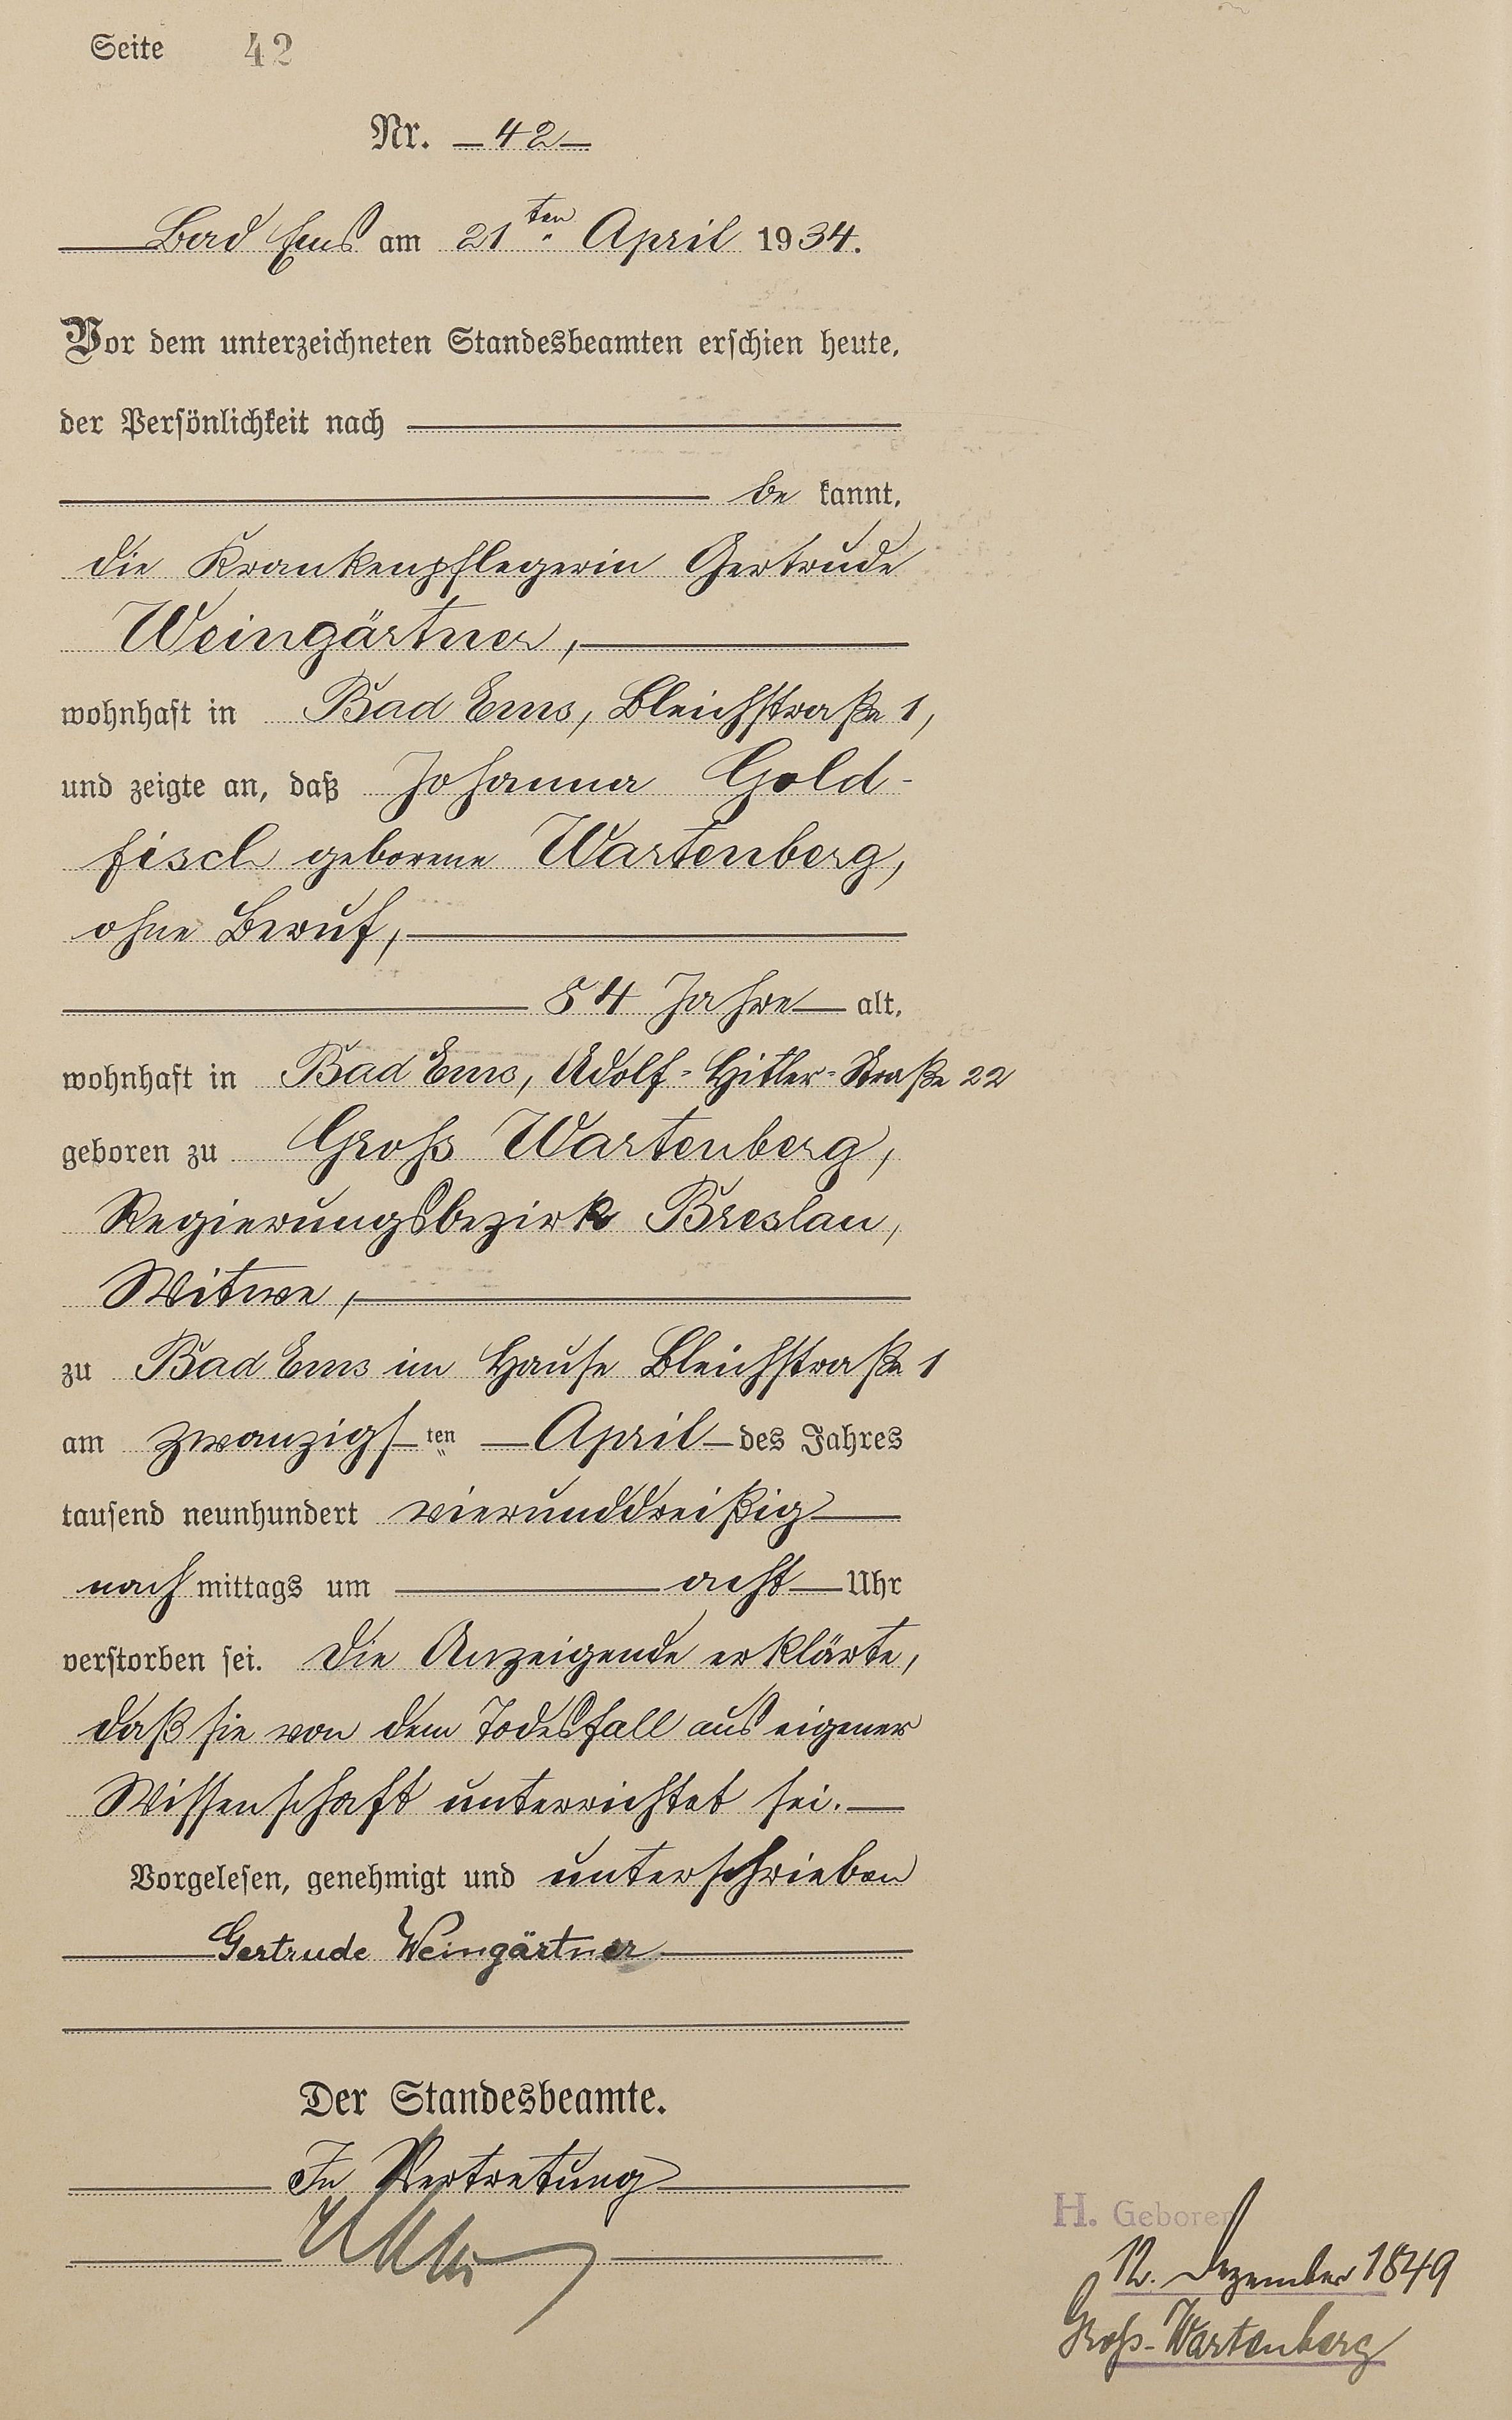 Seite 42
Nr. 42
Bad Ems am 21ten April 1934.
Vor dem unterzeichneten Standesbeamten erschien heute,
der Persönlichkeit nach
be kannt,
die Krankenpflegerin Gertrude
Weingärtner,
wohnhaft in Bad Ems, Bleichstraße 1,
und zeigte an, daß Johanna Gold-
fisch geborene Wartenberg,
ohne Beruf,
84 Jahre alt,
wohnhaft in Bad Ems, Adolf-Hitler-Straße 22
geboren zu Groß Wartenberg,
Regierungsbezirk Breslau,
Witwe,
zu Bad Ems im Hause Bleichstraße 1
am zwanzigsten April des Jahres
tausend neunhundert vierunddreißig
nach mittags um acht Uhr
verstorben sei. Die Anzeigende erklärte,
daß sie von dem Todesfall aus eigener
Wissenschaft unterrichtet sei.
Vorgelesen, genehmigt und unterschrieben
Gertrude Weingärtner
Der Standesbeamte.
In Vertretung
H. Geboren
12. Dezember 1849
Groß-Wartenberg